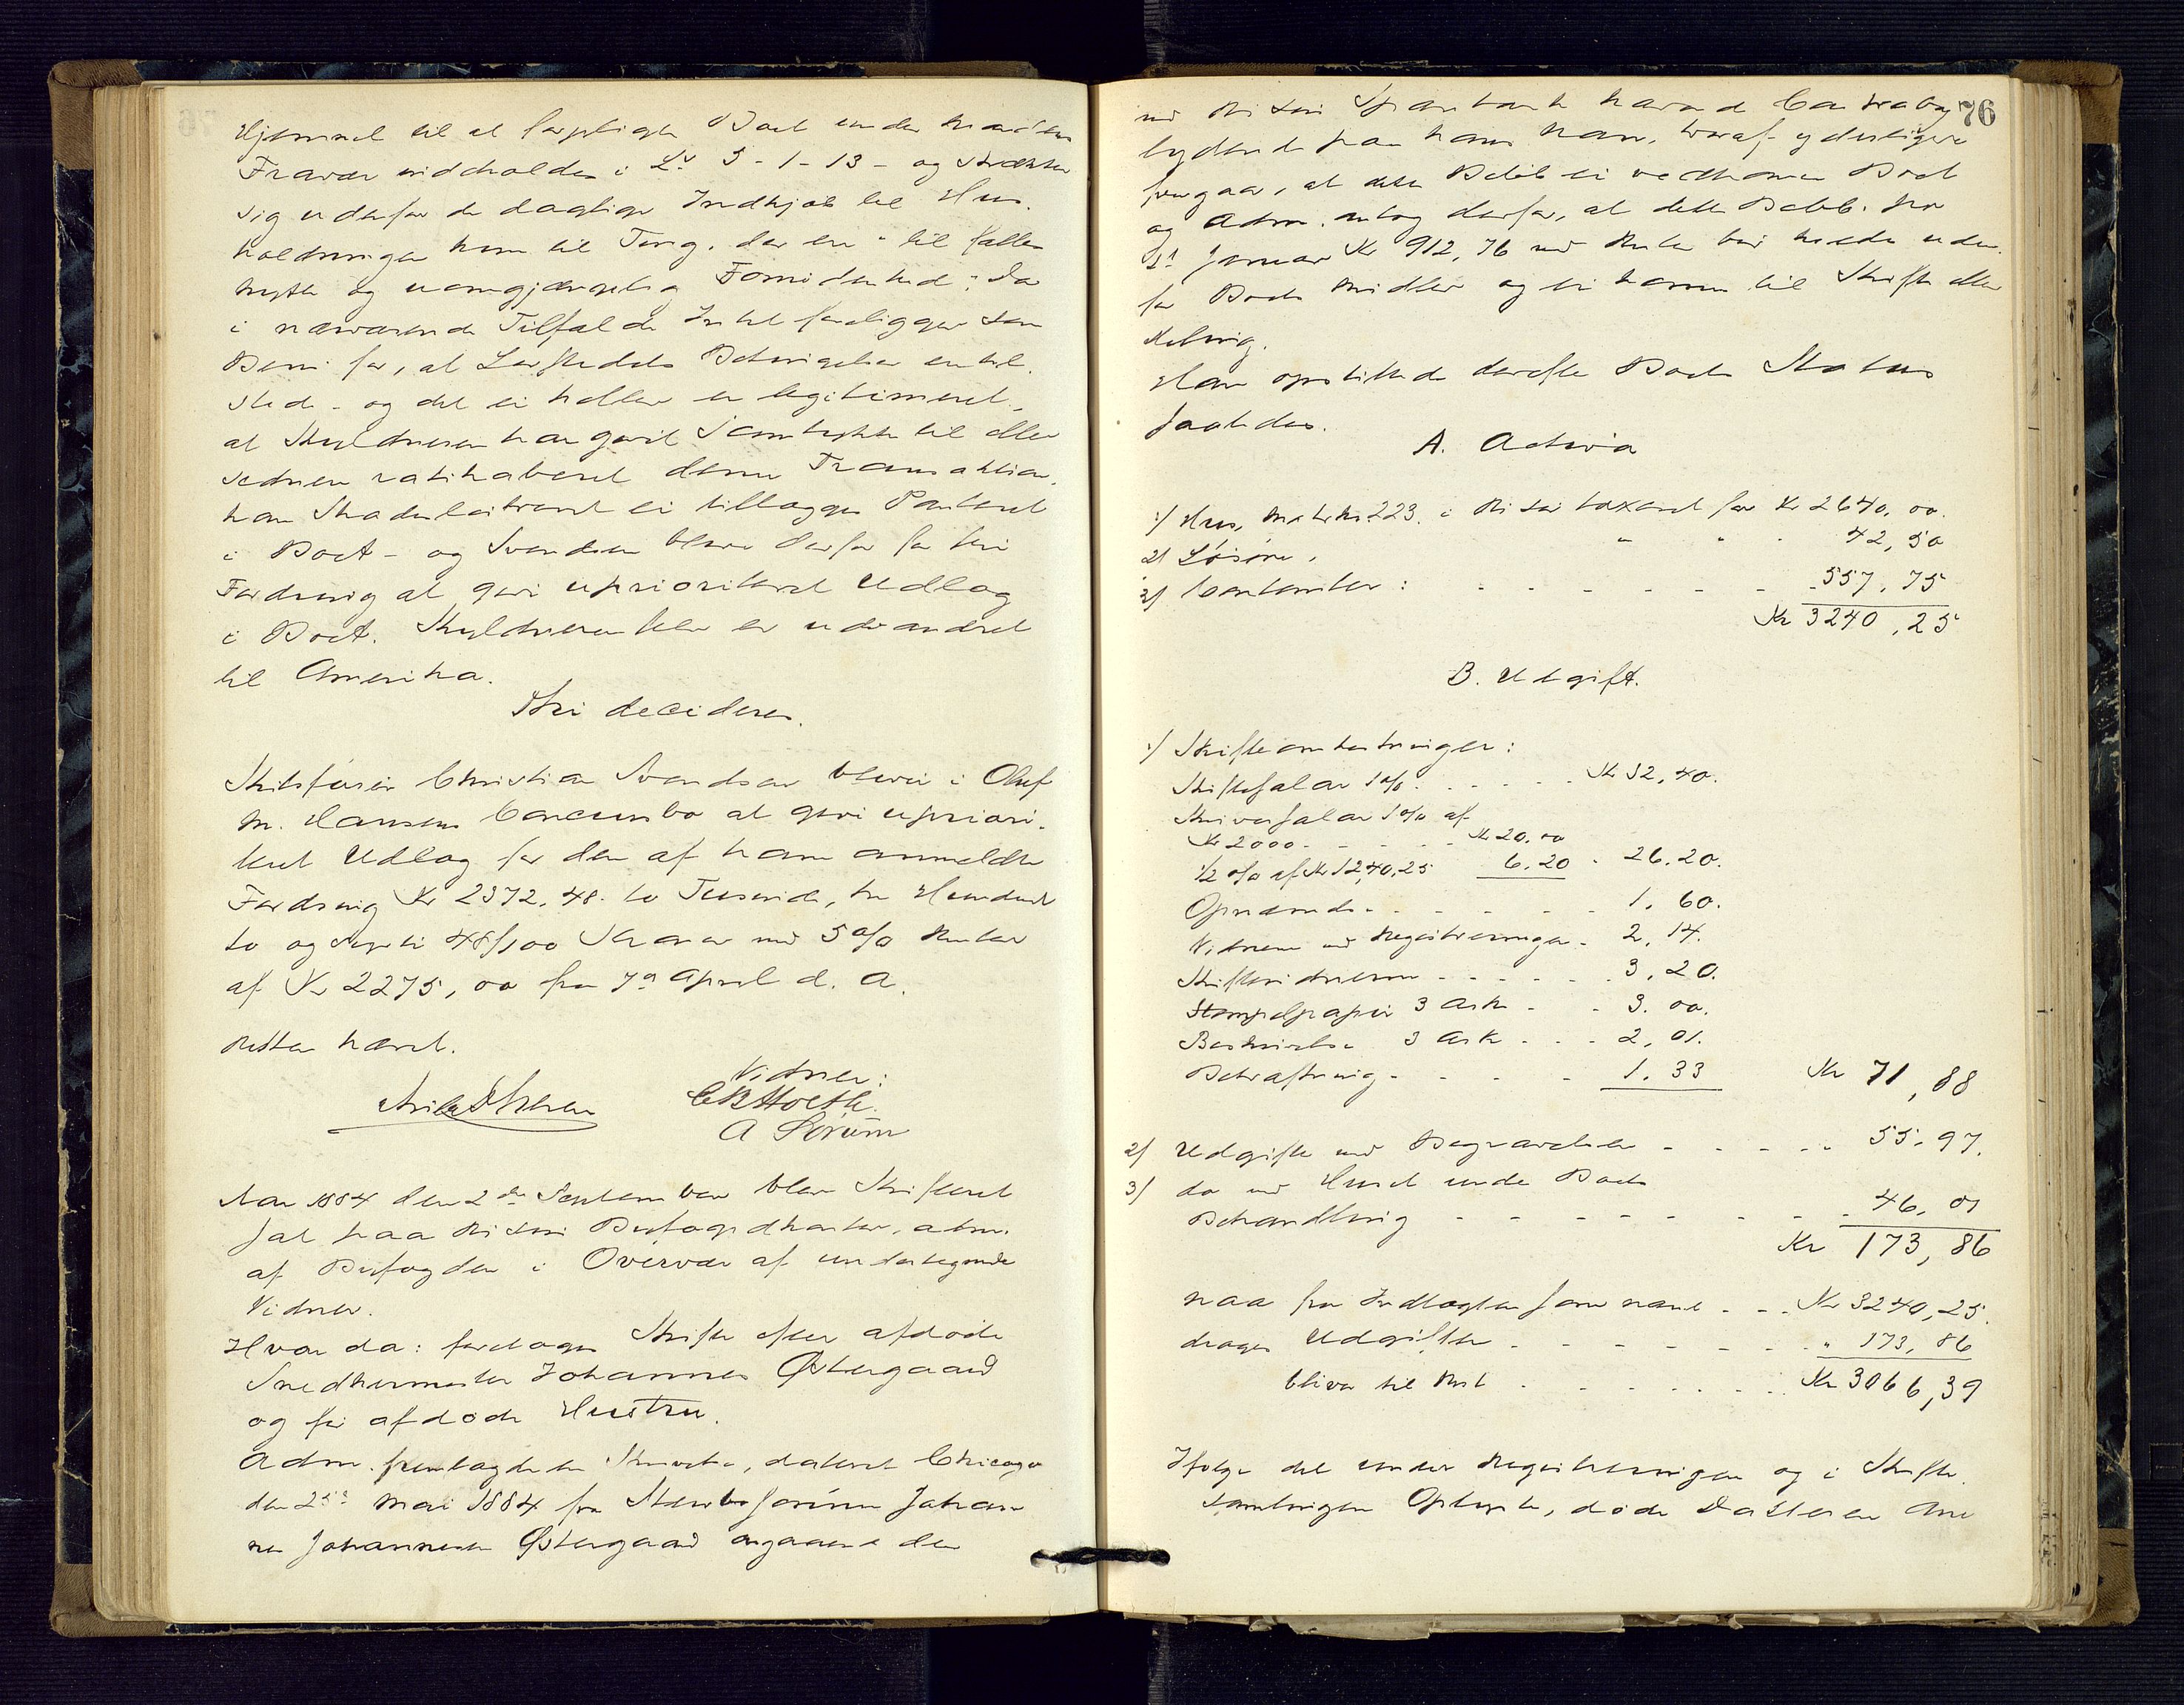 Hjemmel til at forpligte Boet under Mandens
Fravær indeholdes i L. 5-1-13 - og strækker
sig udenfor de daglige Indkjøb til Hus-
holdningen kun til Ting, der ere "til fælles
Nytte og uomgjængelig Fornødenhed". Da
i nærværende Tilfælde Intet foreligger som
Bevis for, at Lovstedets Betingelser ere til-
stede - og det ei heller er legitimeret,
at Skyldneren har givet Samtykke til eller
sednere ratihaberet denne Transaktion,
kan Skadesløsbrevet ei tillægges Panteret
i Boet - og Svendsen bliver derfor for sin
Fordring at give uprioriteret Udlæg
i Boet. Skyldneren selv er udvandret
til Amerika.
Thi decideres.
Skibsfører Christian Svendsen bliver i Oluf
M. Hansens Concursbo at give upriori-
teret Udlæg for den af ham anmeldte
Fordring Kr 2372,48. to Tusinde, tre Hundrede
to og sytti 48/100 Kroner med 5 o/o Renter
af Kr 2275,00 fra 7de April d. A.
Retten hævet.
Vidner:
A Sørum
Aar 1884 den 2den September blev Skifteret
sat paa Risør Byfogedkontor, adm.
af Byfogden i Overvær af undertegnede
Vidner.
Hvor da: foretoges Skifte efter afdøde
Snedkermester Johannes Østergaard
og før afdøde Hustru.
Adm. fremlagde en Skrivelse, dateret Chicago
den 25de Mai 1884 fra Stervbosønnen Johan-
nes Johannesen Østergaard angaaende den
76
med Risør Sparebank havende Contrabog
lydende paa hans Navn, hvoraf yderligere
fremgaar, at dette Beløb ei vedkommer Boet
og Adm. antog derfor, at dette Beløb pro
1st Januar Kr 912,76 med Renter bør holdes uden-
for Boets Midler og ei komme til Skifte eller
Deling.
Han opstillede derefter Boets Status
saaledes.
A. Activa
1) Hus, Matr. No. 223 i Risør taxeret for Kr 2640,00.
2) Løsøre, " " - 42,50
3) Contanter: - - - - - - 557,75
Kr 3240,25
B. Udgift.
1) Skifteomkostninger:
Skiftesalær 1 o/o. . . . . . Kr 32,40.
Skriversalær 1 o/o af
Kr 2000. - - - - Kr 20,00
1/2 o/o af Kr 1240,25 6.20 - 26.20.
Opnævnelse - - - - - 1,60.
Vidnerne ved Registreringen - 2,14.
Skiftevidnerne - - - - - 3,20.
Stempelpapir 3 Ark - - 3.00.
Beskrivelse 3 Ark - - - 2,01.
Bekræftning - - - - - 1.33 Kr 71,88
2) Udgifter ved Begravelsen - - - - - 55,97.
3) do ved Huset under Boets
Behandling - - - - - - - 46,01
Kr 173,86
naar fra Indtægten som nævnt - - Kr 3240,25.
drages Udgifter - - - - - - " 173,86
bliver til Rest - - - - - - Kr 3066,39
Ifølge det under Registreringen og i Skifte-
samlingen Oplyste, døde Datteren Ane